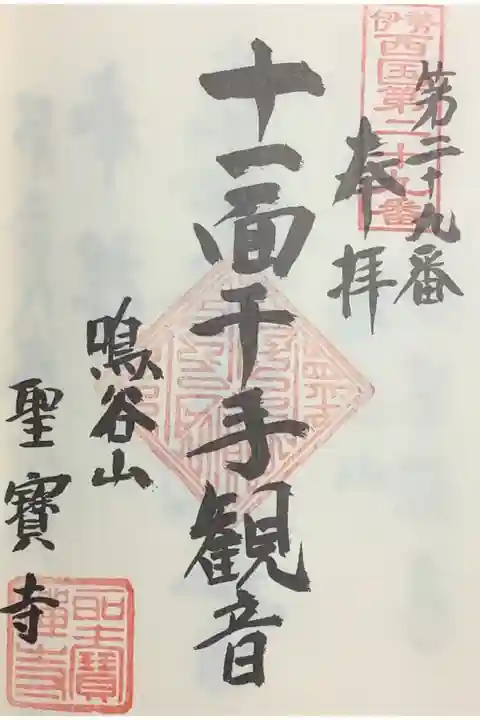 伊勢
西国第二十九番
第二十九番
奉拝
十一面千手観音
鳴谷山
聖寶寺
聖寶
禅寺